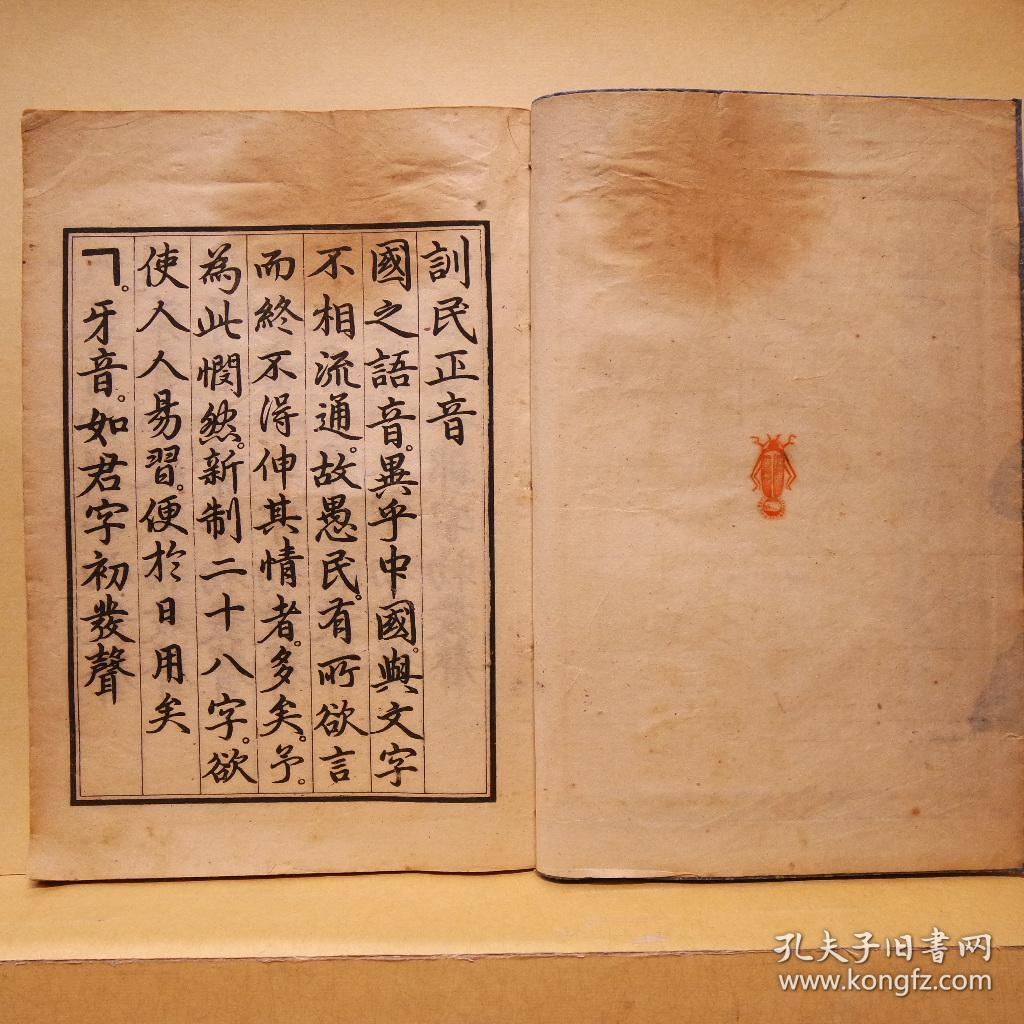 訓民正音
國之語音。異乎中國。與文字
不相流通。故愚民。有所欲言
而終不得伸其情者。多矣。予。
為此憫然。新制二十八字。欲
使人人易習。便於日用矣
ㄱ。牙音。如君字初發聲
孔夫子旧书网
www.kongfz.com